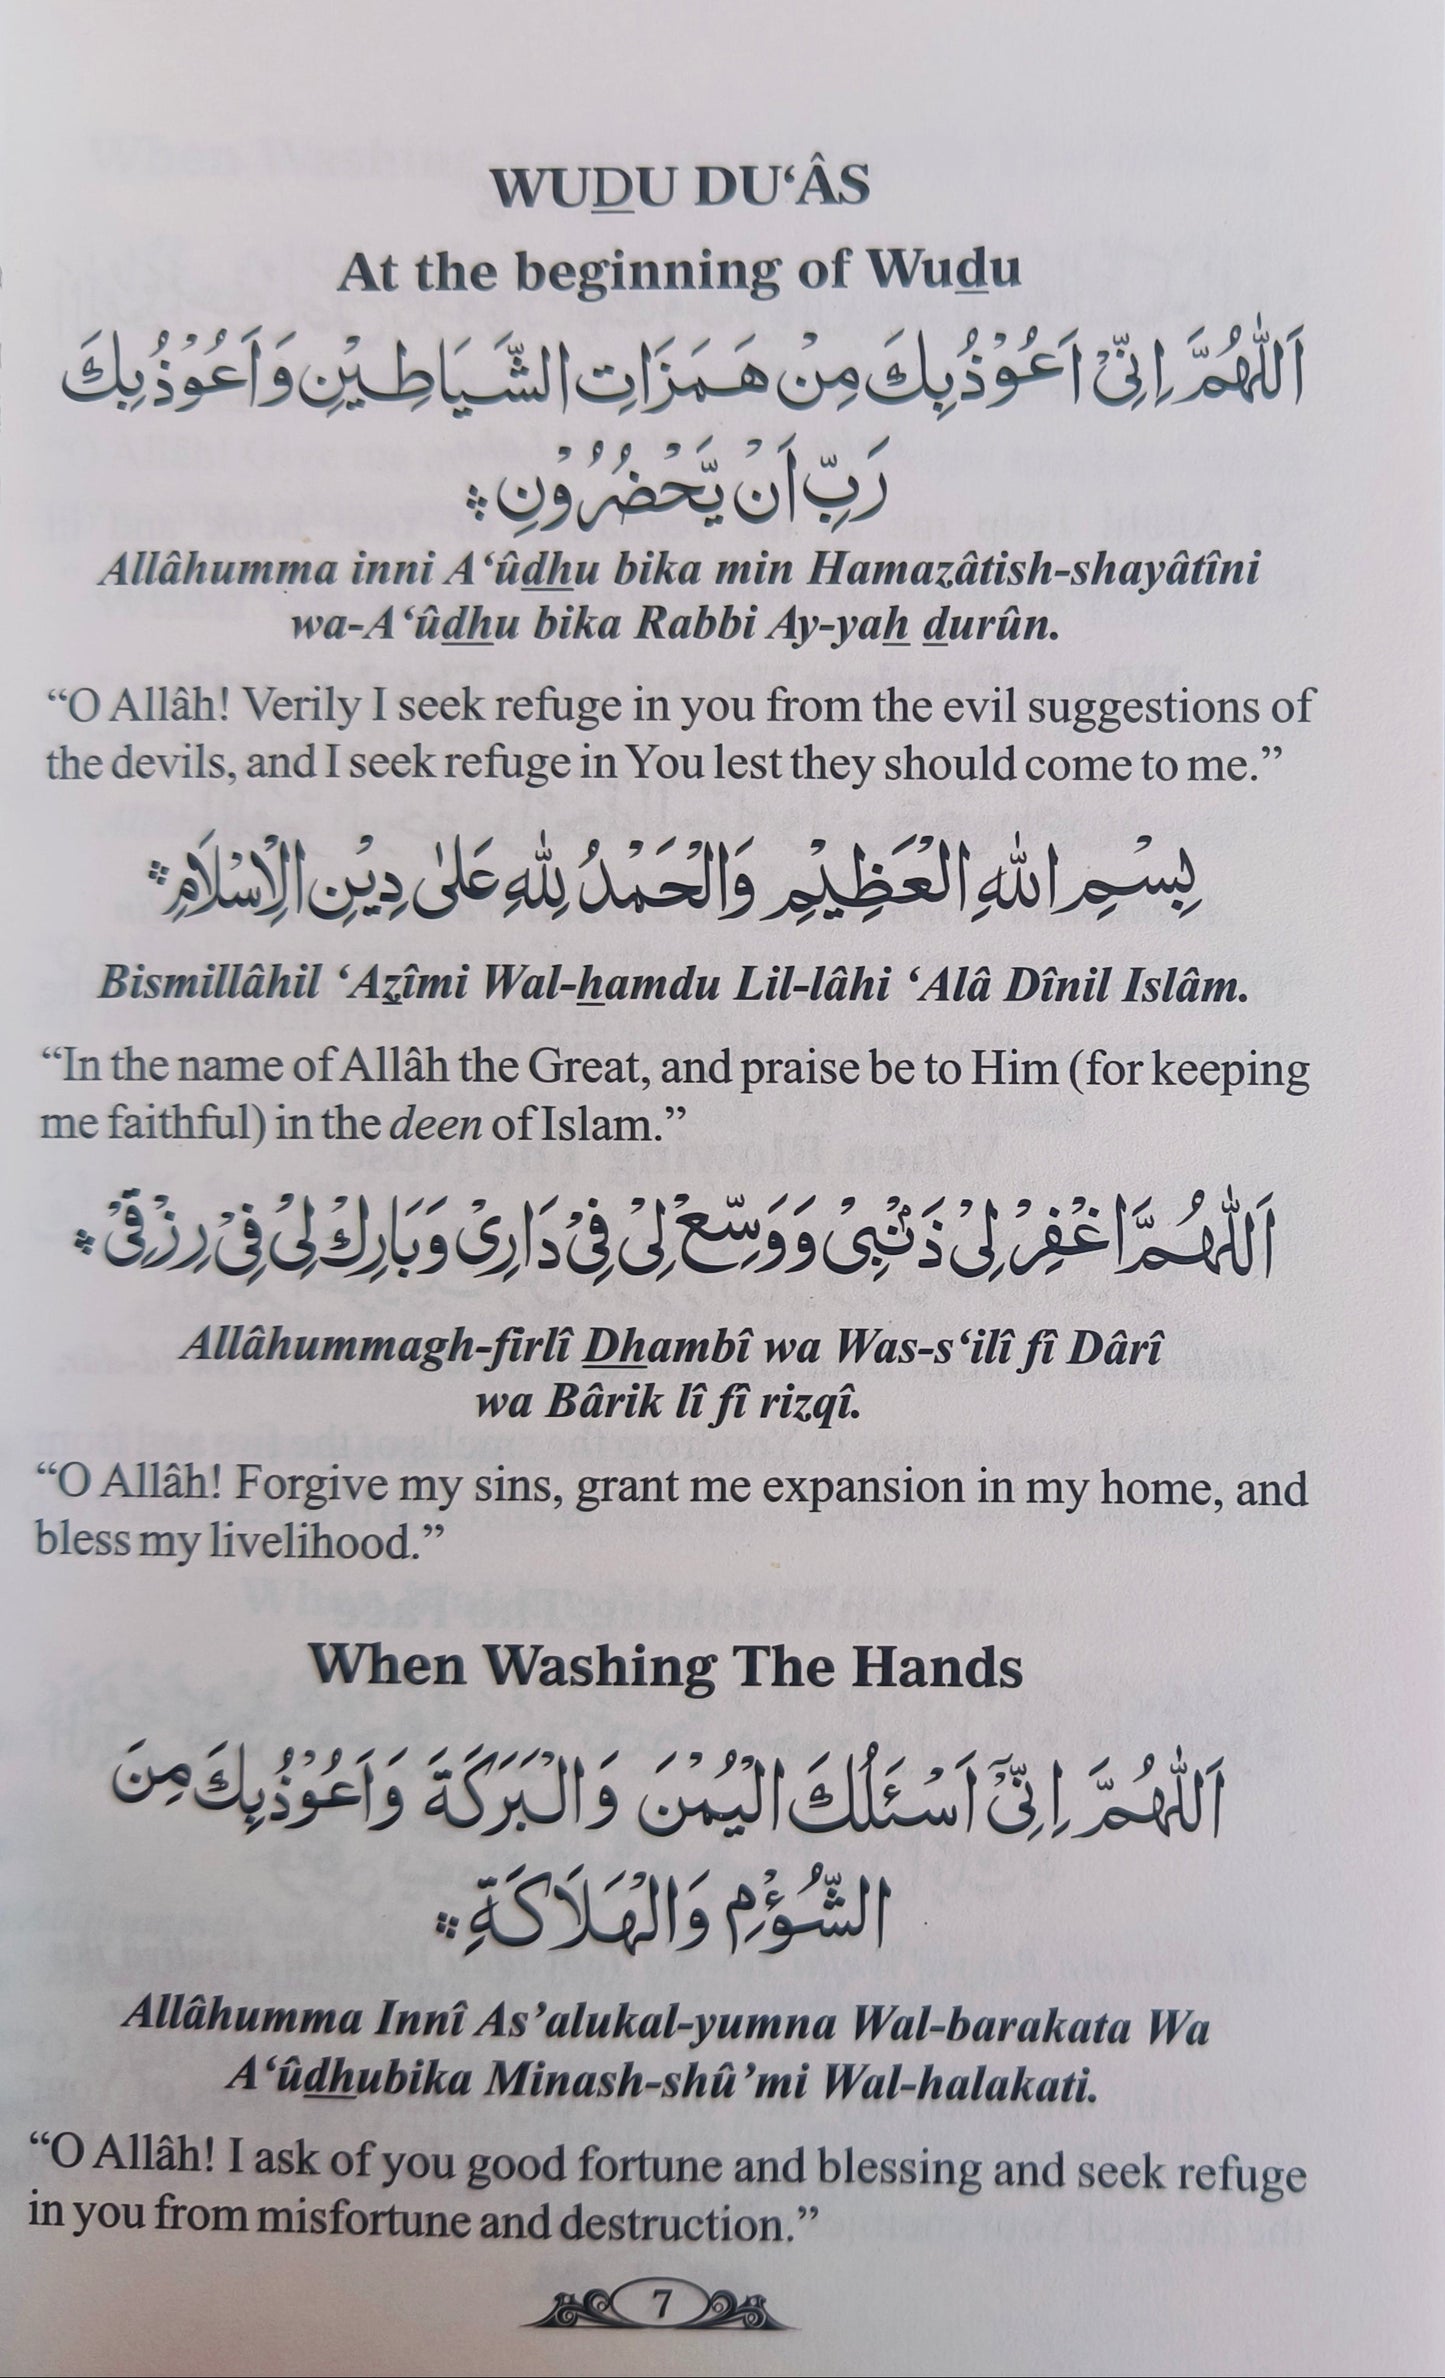 WUDU DU‘ÂS
At the beginning of Wudu
اَللّٰهُمَّ اِنِّیْ اَعُوْذُبِكَ مِنْ هَمَزَاتِ الشَّيَاطِيْنِ وَاَعُوْذُبِكَ
رَبِّ اَنْ يَّحْضُرُوْنِ
Allâhumma inni A‘ûdhu bika min Hamazâtish-shayâtîni
wa-A‘ûdhu bika Rabbi Ay-yah durûn.
“O Allâh! Verily I seek refuge in you from the evil suggestions of
the devils, and I seek refuge in You lest they should come to me.”
بِسْمِ اللّٰهِ الْعَظِيْمِ وَالْحَمْدُ لِلّٰهِ عَلٰى دِيْنِ الْاِسْلَامِ
Bismillâhil ‘Azîmi Wal-hamdu Lil-lâhi ‘Alâ Dînil Islâm.
“In the name of Allâh the Great, and praise be to Him (for keeping
me faithful) in the deen of Islam.”
اَللّٰهُمَّ اغْفِرْ لِیْ ذَنْۢبِیْ وَوَسِّعْ لِیْ فِیْ دَارِیْ وَبَارِكْ لِیْ فِیْ رِزْقِیْ
Allâhummagh-firlî Dhambî wa Was-s‘ilî fî Dârî
wa Bârik lî fî rizqî.
“O Allâh! Forgive my sins, grant me expansion in my home, and
bless my livelihood.”
When Washing The Hands
اَللّٰهُمَّ اِنِّیْٓ اَسْئَلُكَ الْيُمْنَ وَالْبَرَكَةَ وَاَعُوْذُبِكَ مِنَ
الشُّؤْمِ وَالْهَلَاكَةِ
Allâhumma Innî As’alukal-yumna Wal-barakata Wa
A‘ûdhubika Minash-shû’mi Wal-halakati.
“O Allâh! I ask of you good fortune and blessing and seek refuge
in you from misfortune and destruction.”
7